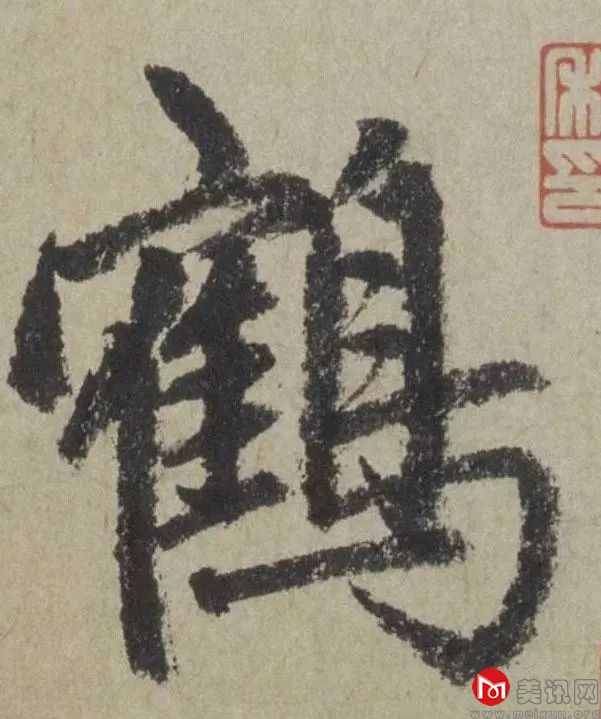 鶴
美讯网
www.meixun.org